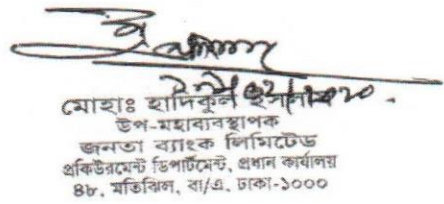 মোহাঃ হাদিকুল ইসলাম
উপ-মহাব্যবস্থাপক
জনতা ব্যাংক লিমিটেড
প্রকিউরমেন্ট ডিপার্টমেন্ট, প্রধান কার্যালয়
৪৮, মতিঝিল, বা/এ, ঢাকা-১০০০